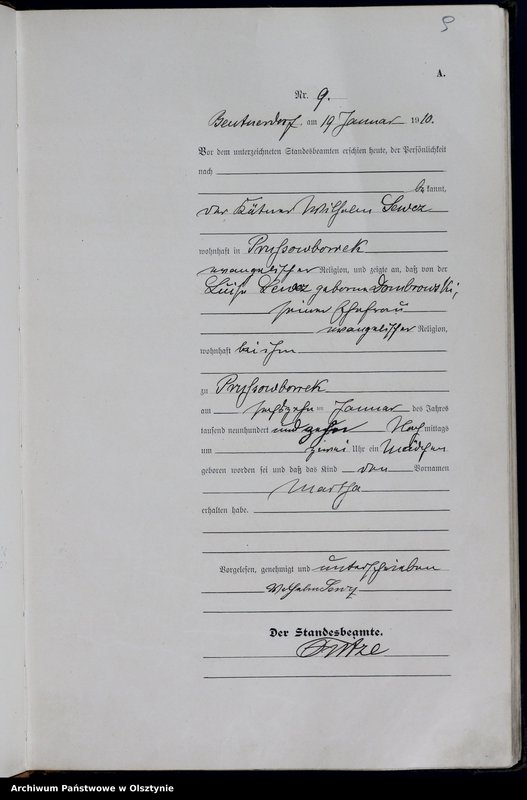 9
A.
Nr. 9.
Beutnerdorf am 19 Januar 1910.
Vor dem unterzeichneten Standesbeamten erschien heute, der Persönlichkeit
nach
bekannt,
der Kätner Wilhelm Sewcz
wohnhaft in Pryssowborrek
evangelischer Religion, und zeigte an, daß von der
Luise Sewcz geborene Dombrowski,
seiner Ehefrau
evangelischer Religion,
wohnhaft bei ihm
zu Pryssowborrek
am sechszehn ten Januar des Jahres
tausend neunhundert und zehn Nachmittags
um zwei Uhr ein Mädchen
geboren worden sei und daß das Kind den Vornamen
Martha
erhalten habe.
Vorgelesen, genehmigt und unterschrieben
Wilhelm Sewcz
Der Standesbeamte.
Fritze
Archiwum Państwowe w Olsztynie